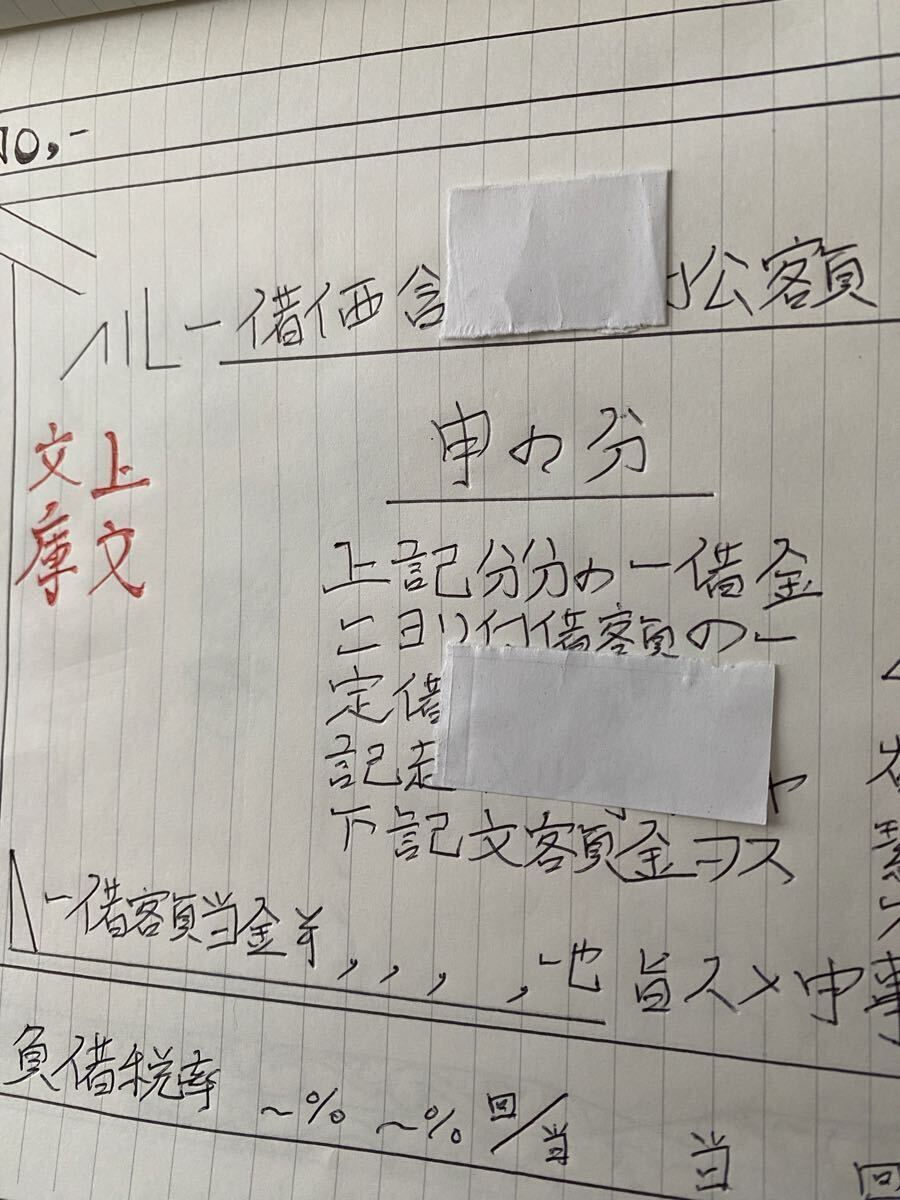 NO,-
ルー借価含 公客額
申の分
上文
文庫
上記分分の一借金
ニヨリ付借客負の一
定借
記走 ヤ
下記文客負金ヨス
一借客負当金¥ , , , , -也
旨入メ申事
負借税率 ~% ~% 回/当 当 回